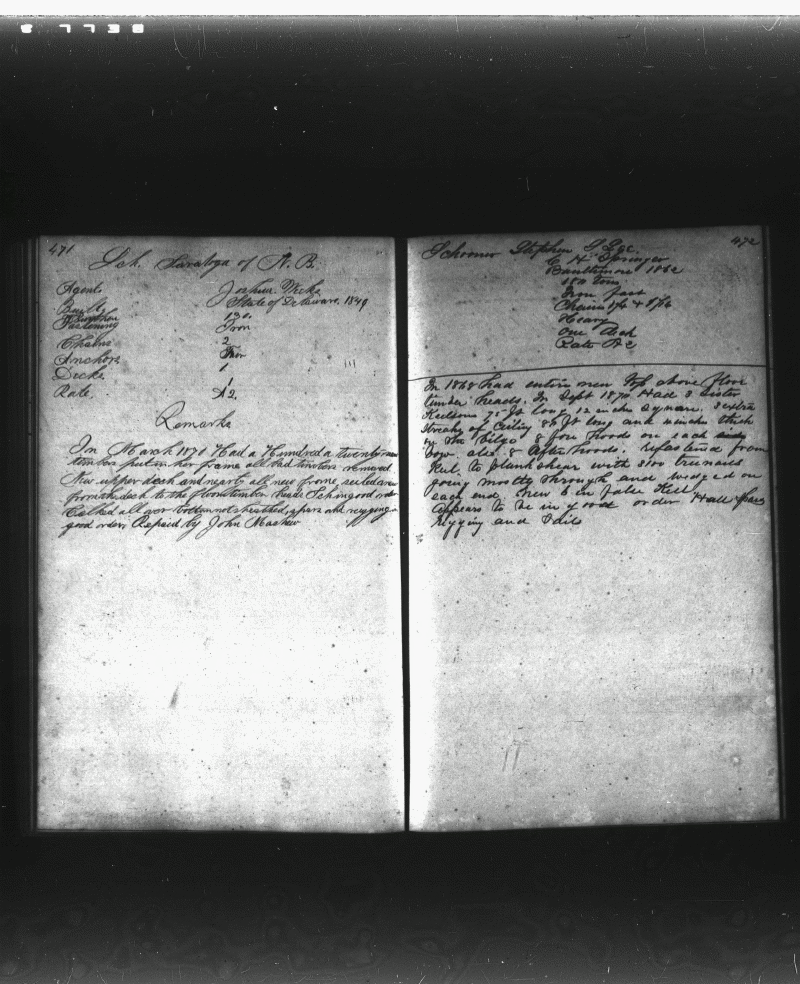 471
Sch. Saratoga of N. B.
Agent Joshua Weeks
Built State of Delaware. 1849
120.
Fastening Iron
Chains 2
Anchors
Decks 1
Rate A2.
Remarks
In March 1870 Had a Hundred a twenty
timbers put in her frame all bad timbers removed
New upper deck and nearly all new frame
from the deck to the floor timber heads Sch in good order
Calked all over bottom not sheathed, spars and rigging in
good order, Repaid by John
472
Schooner Stephen
C H Springer
1862
180 tons
Iron fast
Chains
Heavy
One deck
Rate A2
In 1868 had entire new top above floor
timber heads. In Sept 1870 Had 3 Sister
Keelsons 75 ft long 12 inches square. 3 extra
Streaks of Ceiling 80 ft long and inches thick
on the bilge 8 fore hoods on each
bow, also 8 After hoods. refastened from
Keel to plank shear with 3100 trunnels
going mostly through and wedged on
each end. New 6 in false Keel
Appears to be in good order Hull Spars
Rigging and Sails